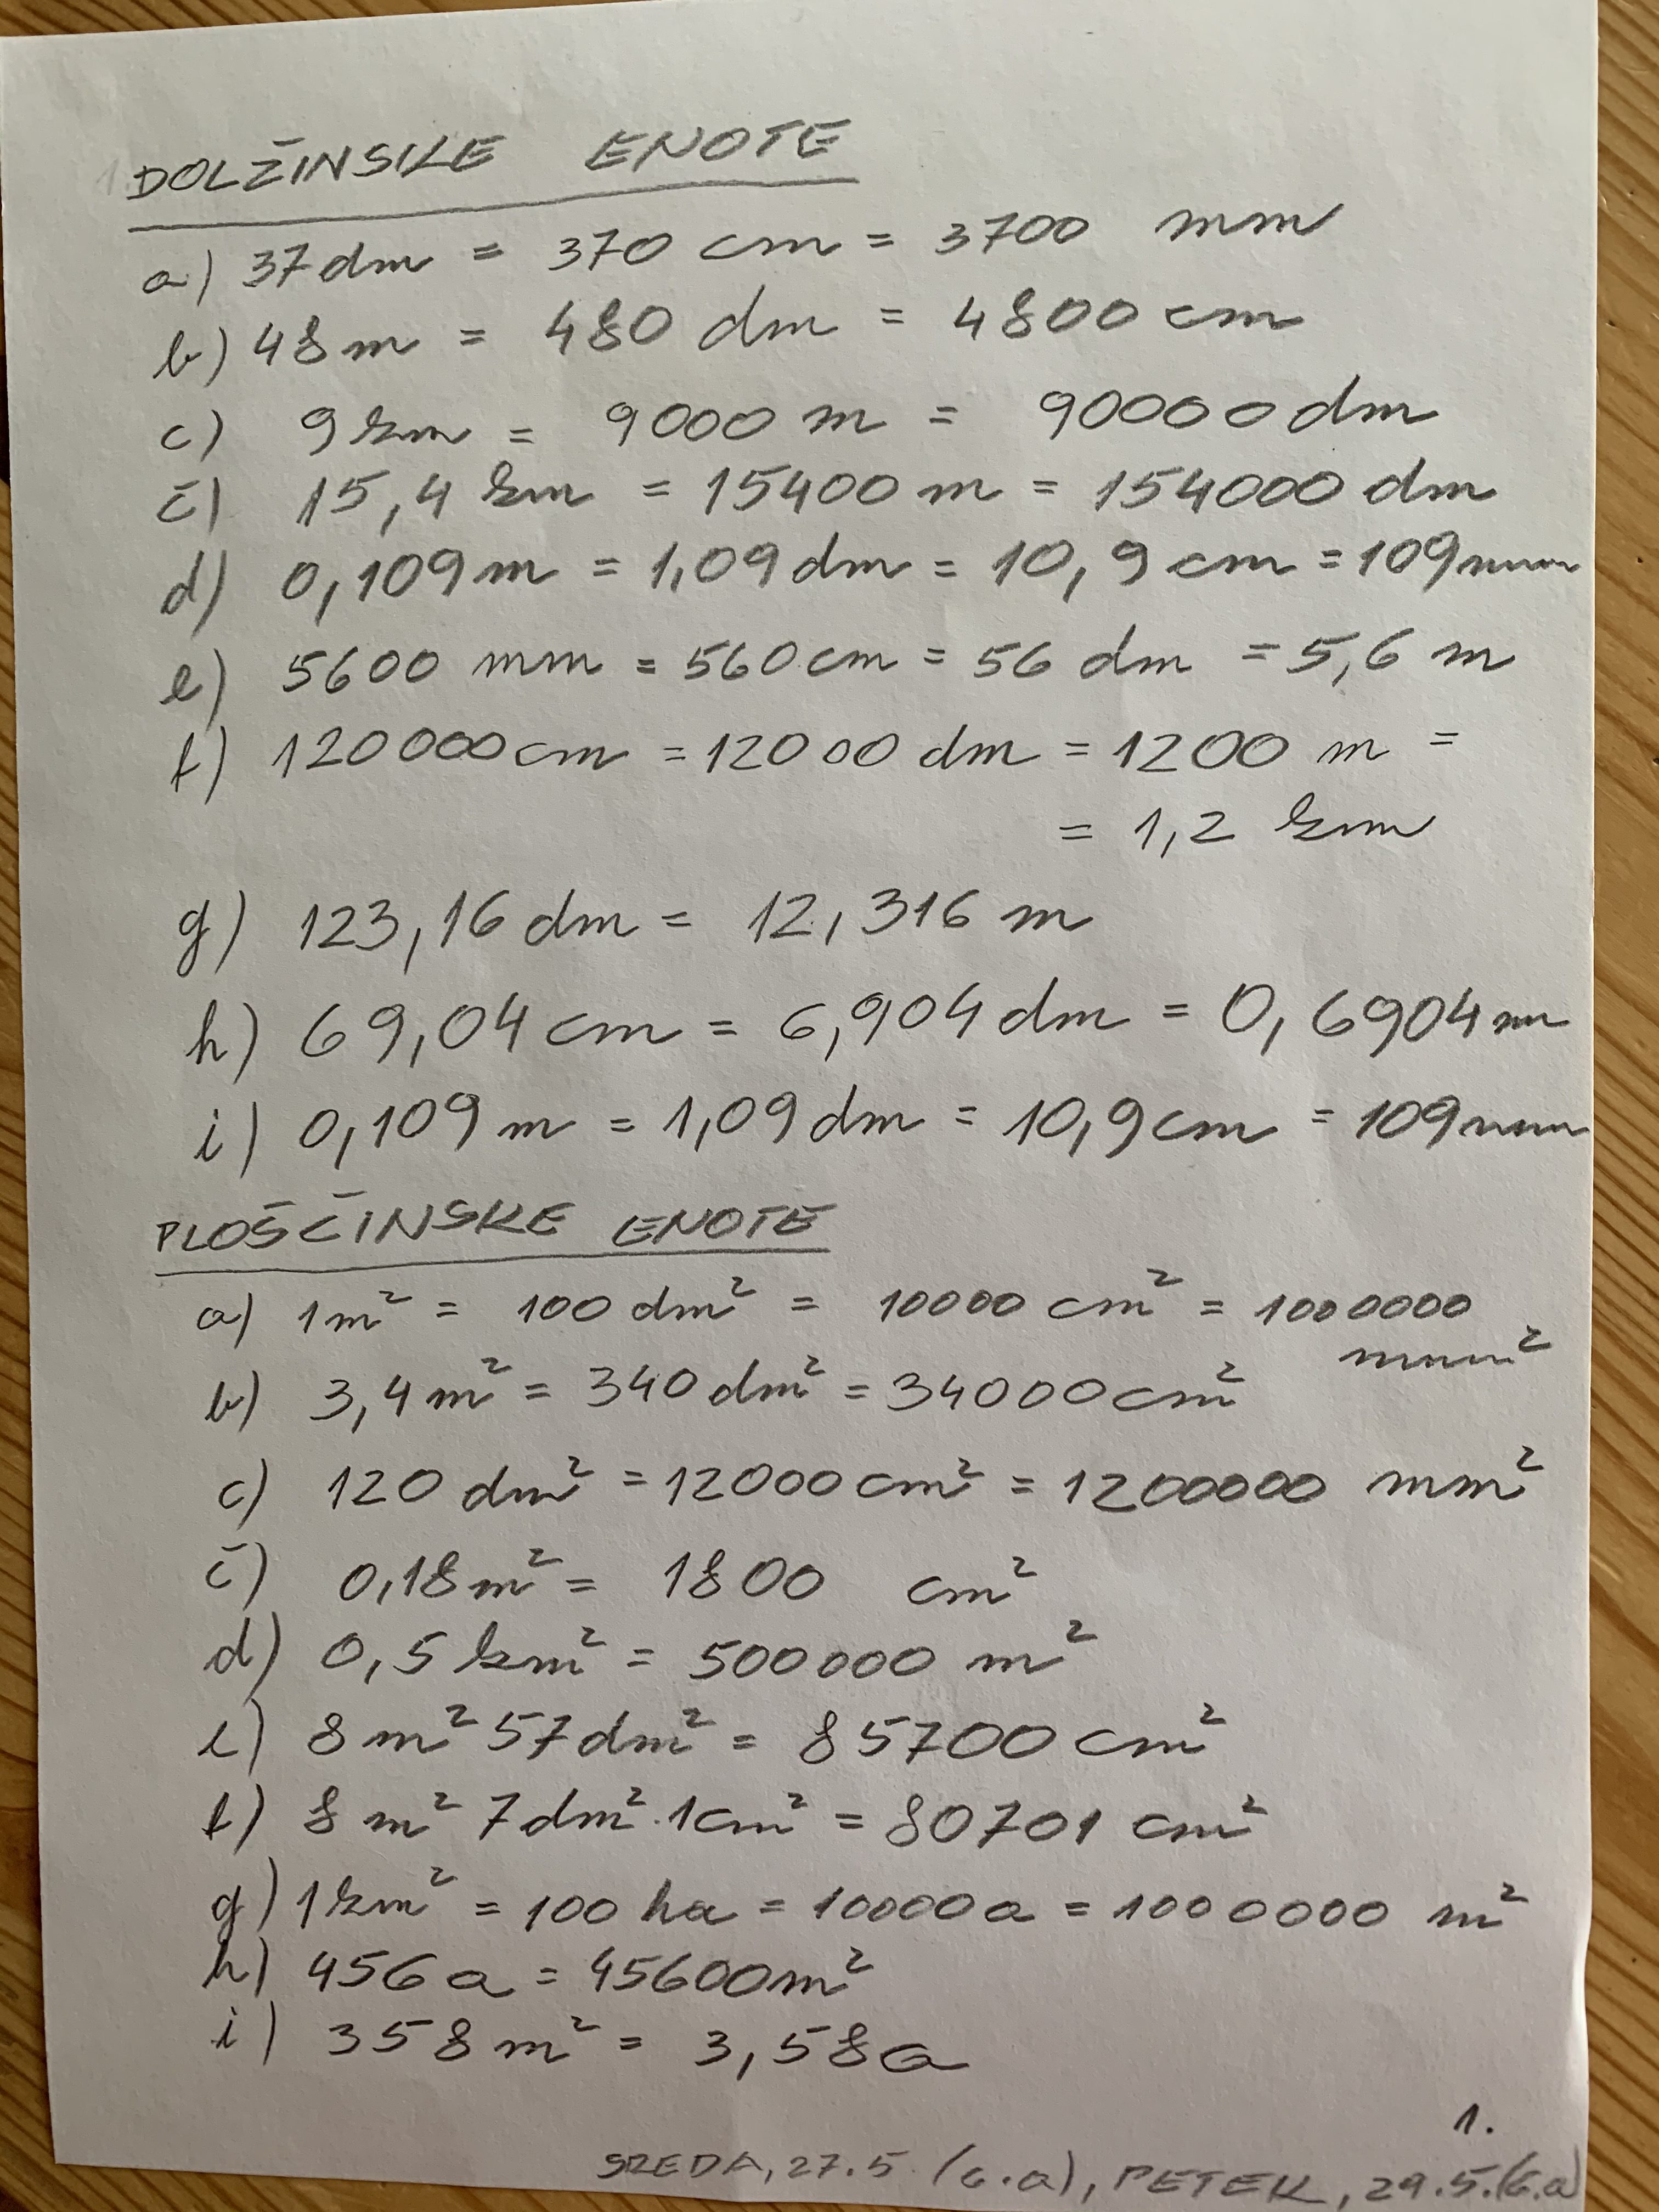 DOLŽINSKE ENOTE
a) 37dm = 370 cm = 3700 mm
b) 48m = 480 dm = 4800 cm
c) 9 km = 9000 m = 90000 dm
č) 15,4 km = 15400 m = 154000 dm
d) 0,109m = 1,09dm = 10,9 cm = 109mm
e) 5600 mm = 560cm = 56 dm = 5,6 m
f) 120000cm = 12000 dm = 1200 m =
= 1,2 km
g) 123,16 dm = 12,316 m
h) 69,04 cm = 6,904 dm = 0,6904 m
i) 0,109 m = 1,09 dm = 10,9cm = 109mm
PLOŠČINSKE ENOTE
a) 1m² = 100 dm² = 10000 cm² = 1000000
mm²
b) 3,4m² = 340dm² = 34000cm²
c) 120 dm² = 12000cm² = 1200000 mm²
č) 0,18m² = 1800 cm²
d) 0,5 km² = 500000 m²
e) 8m² 57dm² = 85700 cm²
f) 8 m² 7dm² 1cm² = 80701 cm²
g) 1km² = 100 ha = 10000a = 1000000 m²
h) 456 a = 45600m²
i) 358 m² = 3,58a
1.
SREDA, 27.5. (6.a), PETEK, 29.5.(6.a)